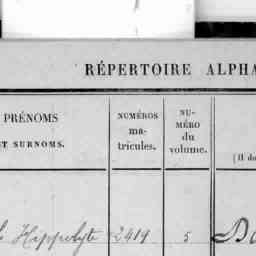 RÉPERTOIRE ALPHA
PRÉNOMS
ET SURNOMS.
NUMÉROS
ma-
tricules.
NU-
MÉRO
du
volume.
(Il d
Hippolyte 2419 5